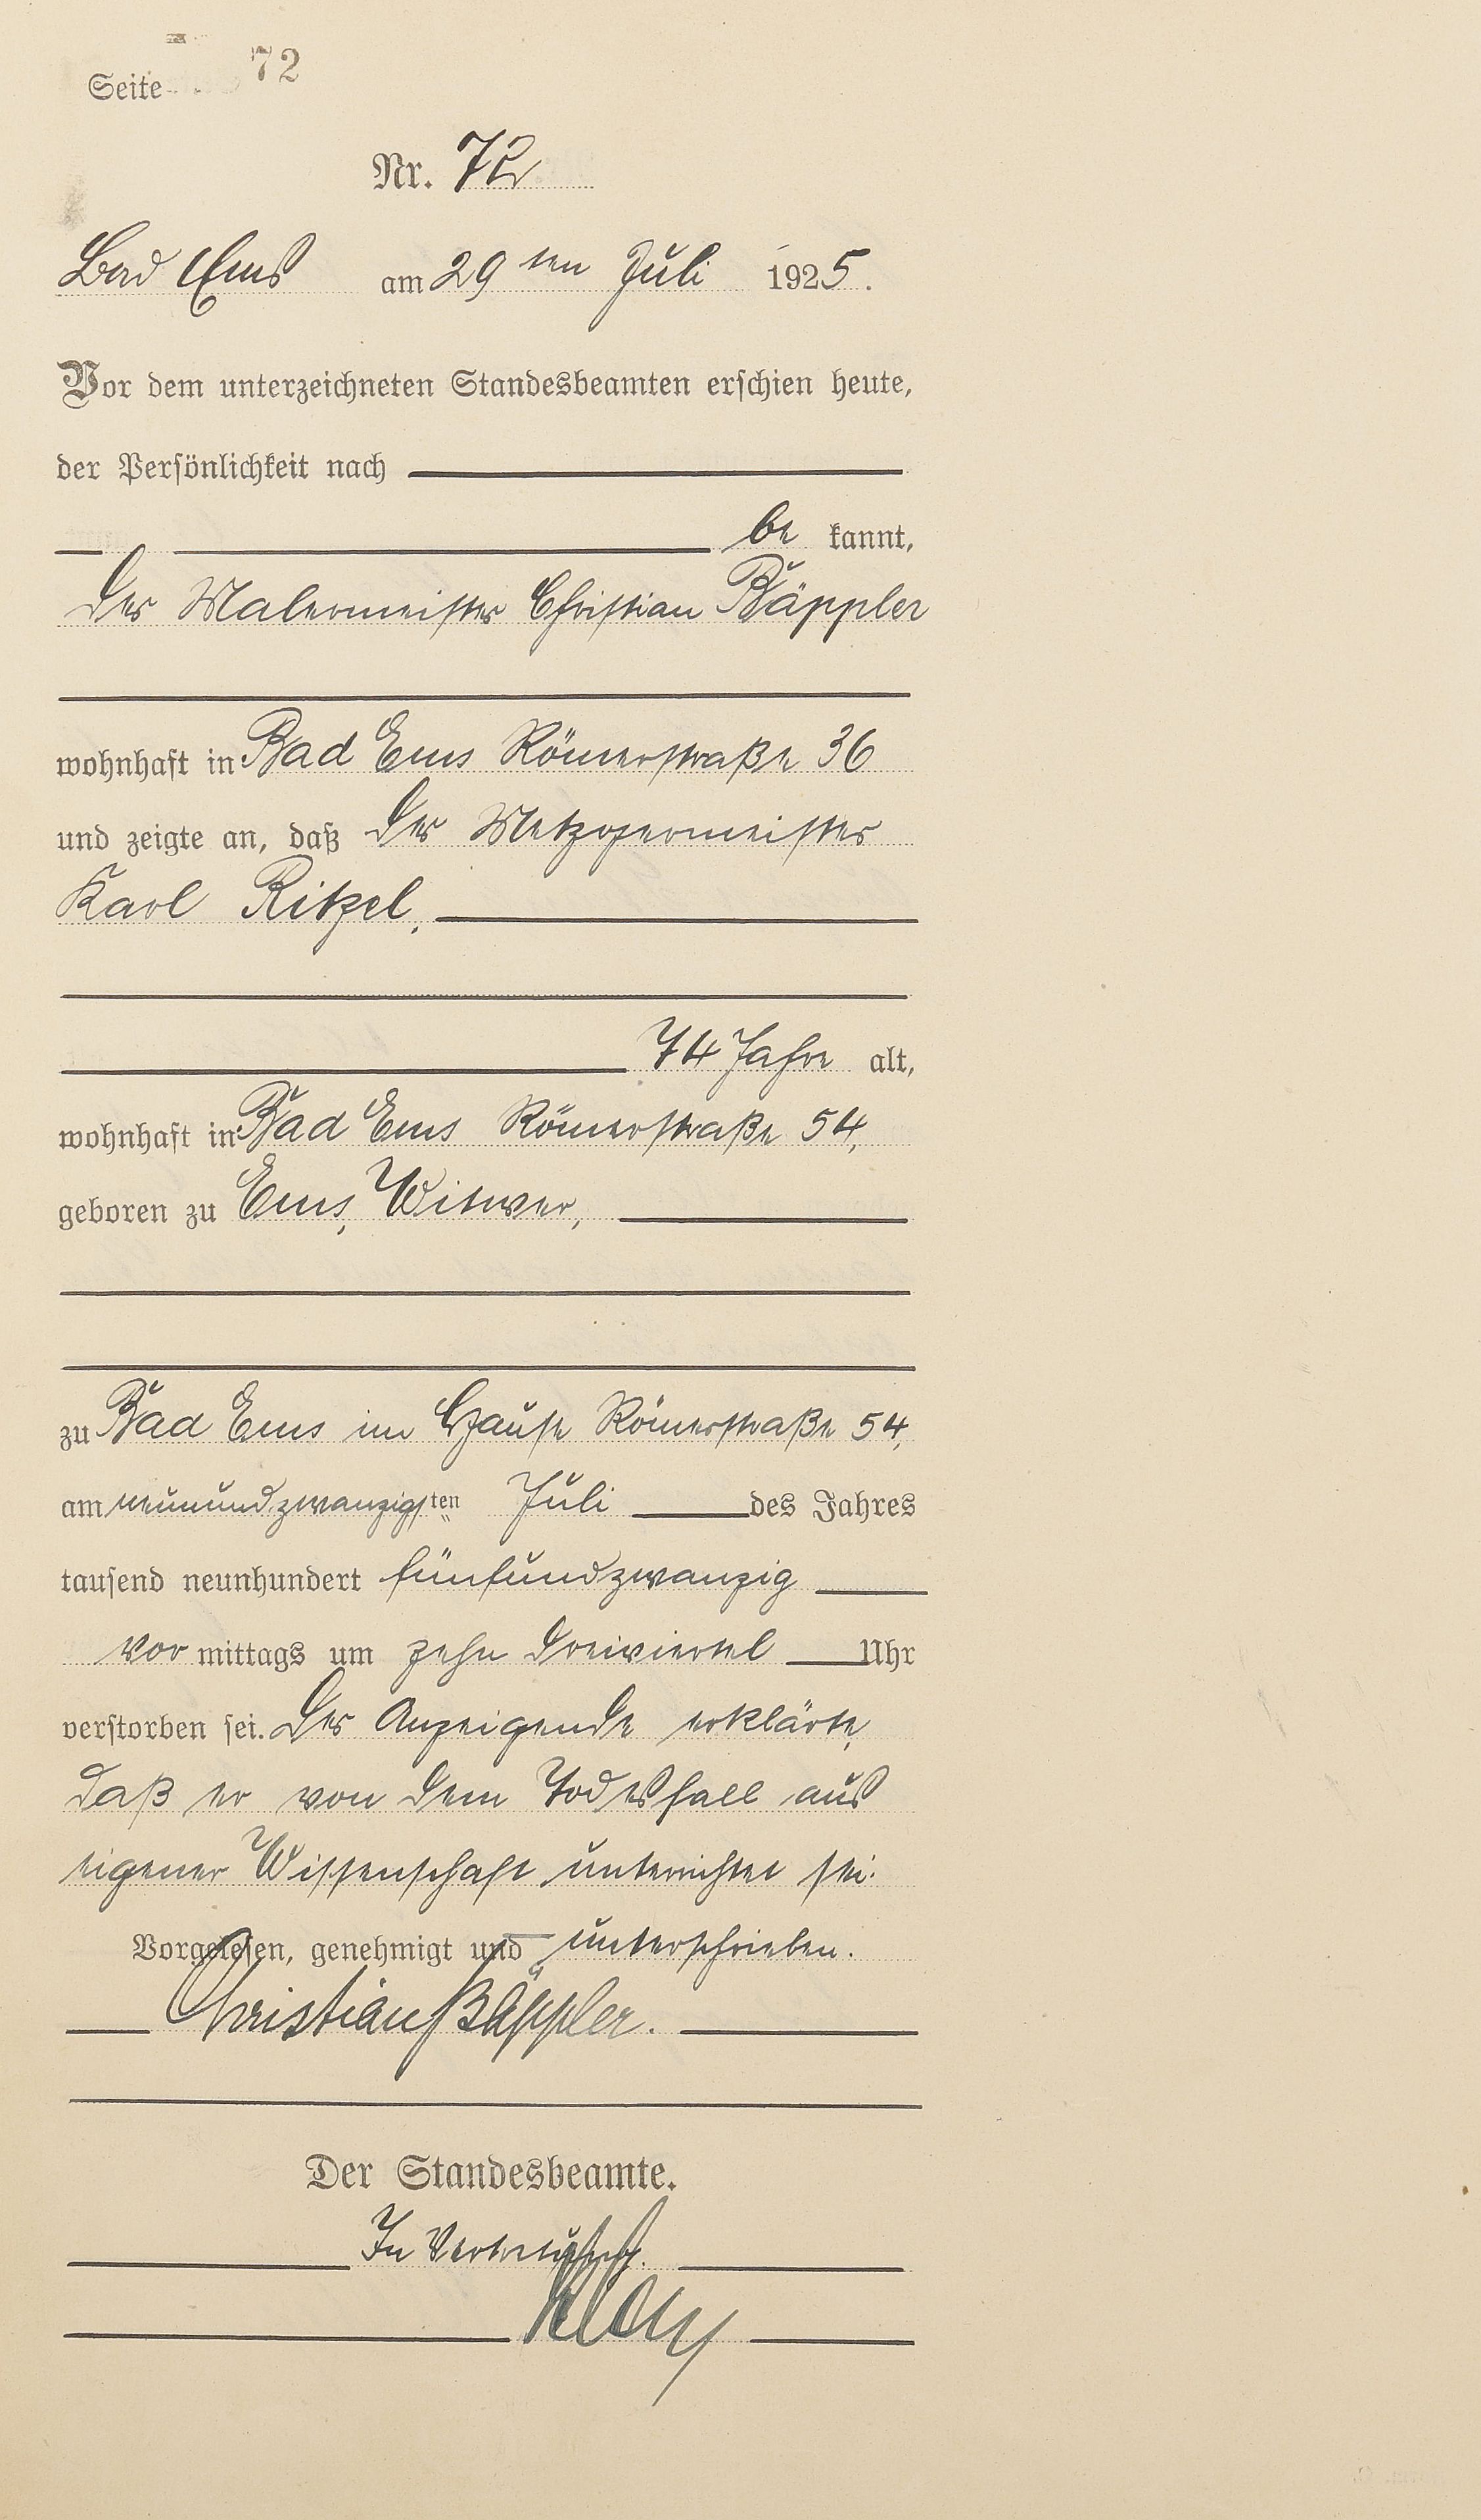 Seite 72
Nr. 72
Bad Ems am 29ten Juli 1925.
Vor dem unterzeichneten Standesbeamten erschien heute,
der Persönlichkeit nach
be kannt,
der Malermeister Christian Bäppler
wohnhaft in Bad Ems Römerstraße 36
und zeigte an, daß der Metzgermeister
Karl Ritzel,
74 Jahre alt,
wohnhaft in Bad Ems Römerstraße 54,
geboren zu Ems, Witwer,
zu Bad Ems im Hause Römerstraße 54,
am neunundzwanzigsten Juli des Jahres
tausend neunhundert fünfundzwanzig
vor mittags um zehn dreiviertel Uhr
verstorben sei. Der Anzeigende erklärte,
daß er von dem Todesfall aus
eigener Wissenschaft unterrichtet sei.
Vorgelesen, genehmigt und unterschrieben.
Christian Bäppler.
Der Standesbeamte.
In Vertretung.